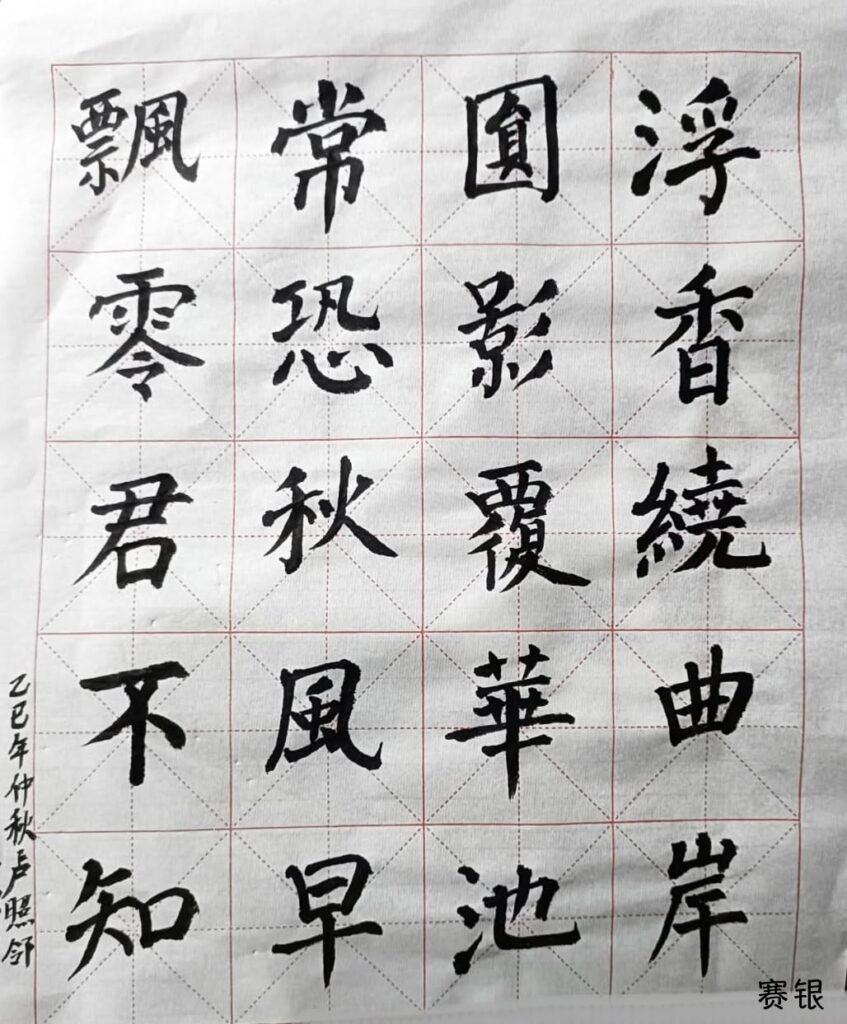 浮香繞曲岸
圓影覆華池
常恐秋風早
飄零君不知
乙巳年仲秋卢照邻
赛银